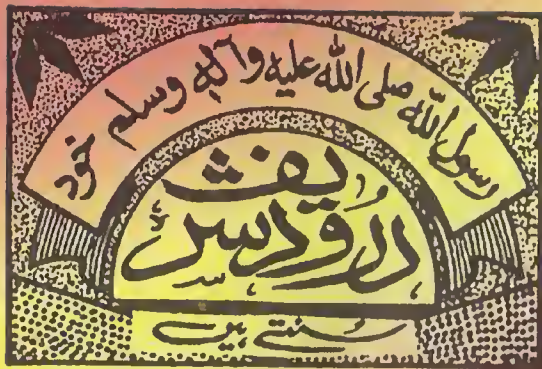 رسول اللہ صلی اللہ علیہ وآلہ وسلم خود
درُود شریف
سُنتے ہیں